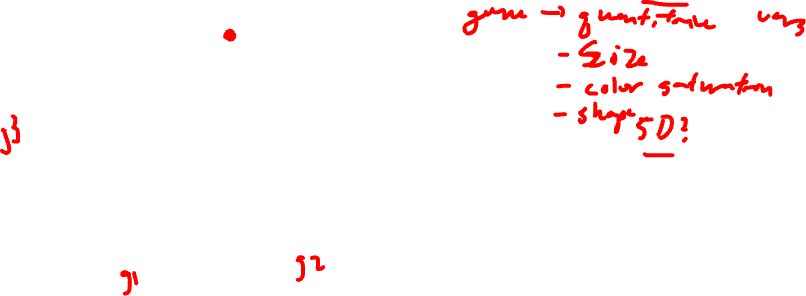 gene → quantitative vars
- size
- color saturation
- shape 5D?
g3
g1 g2